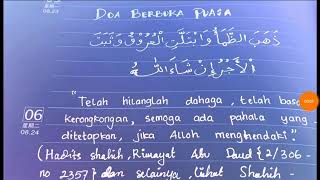 DOA BERBUKA PUASA
ذَهَبَ الظَّمَأُ وَابْتَلَّتِ الْعُرُوْقُ وَثَبَتَ
الْأَجْرُ إِنْ شَاءَ اللهُ
"Telah hilanglah dahaga, telah basah
kerongkongan, semoga ada pahala yang
ditetapkan, jika Alloh menghendaki"
(Hadits shahih, Riwayat Abu Daud {2/306-
no 2357} dan selainya, lihat Shahih
08.23
06
星期二
08.24